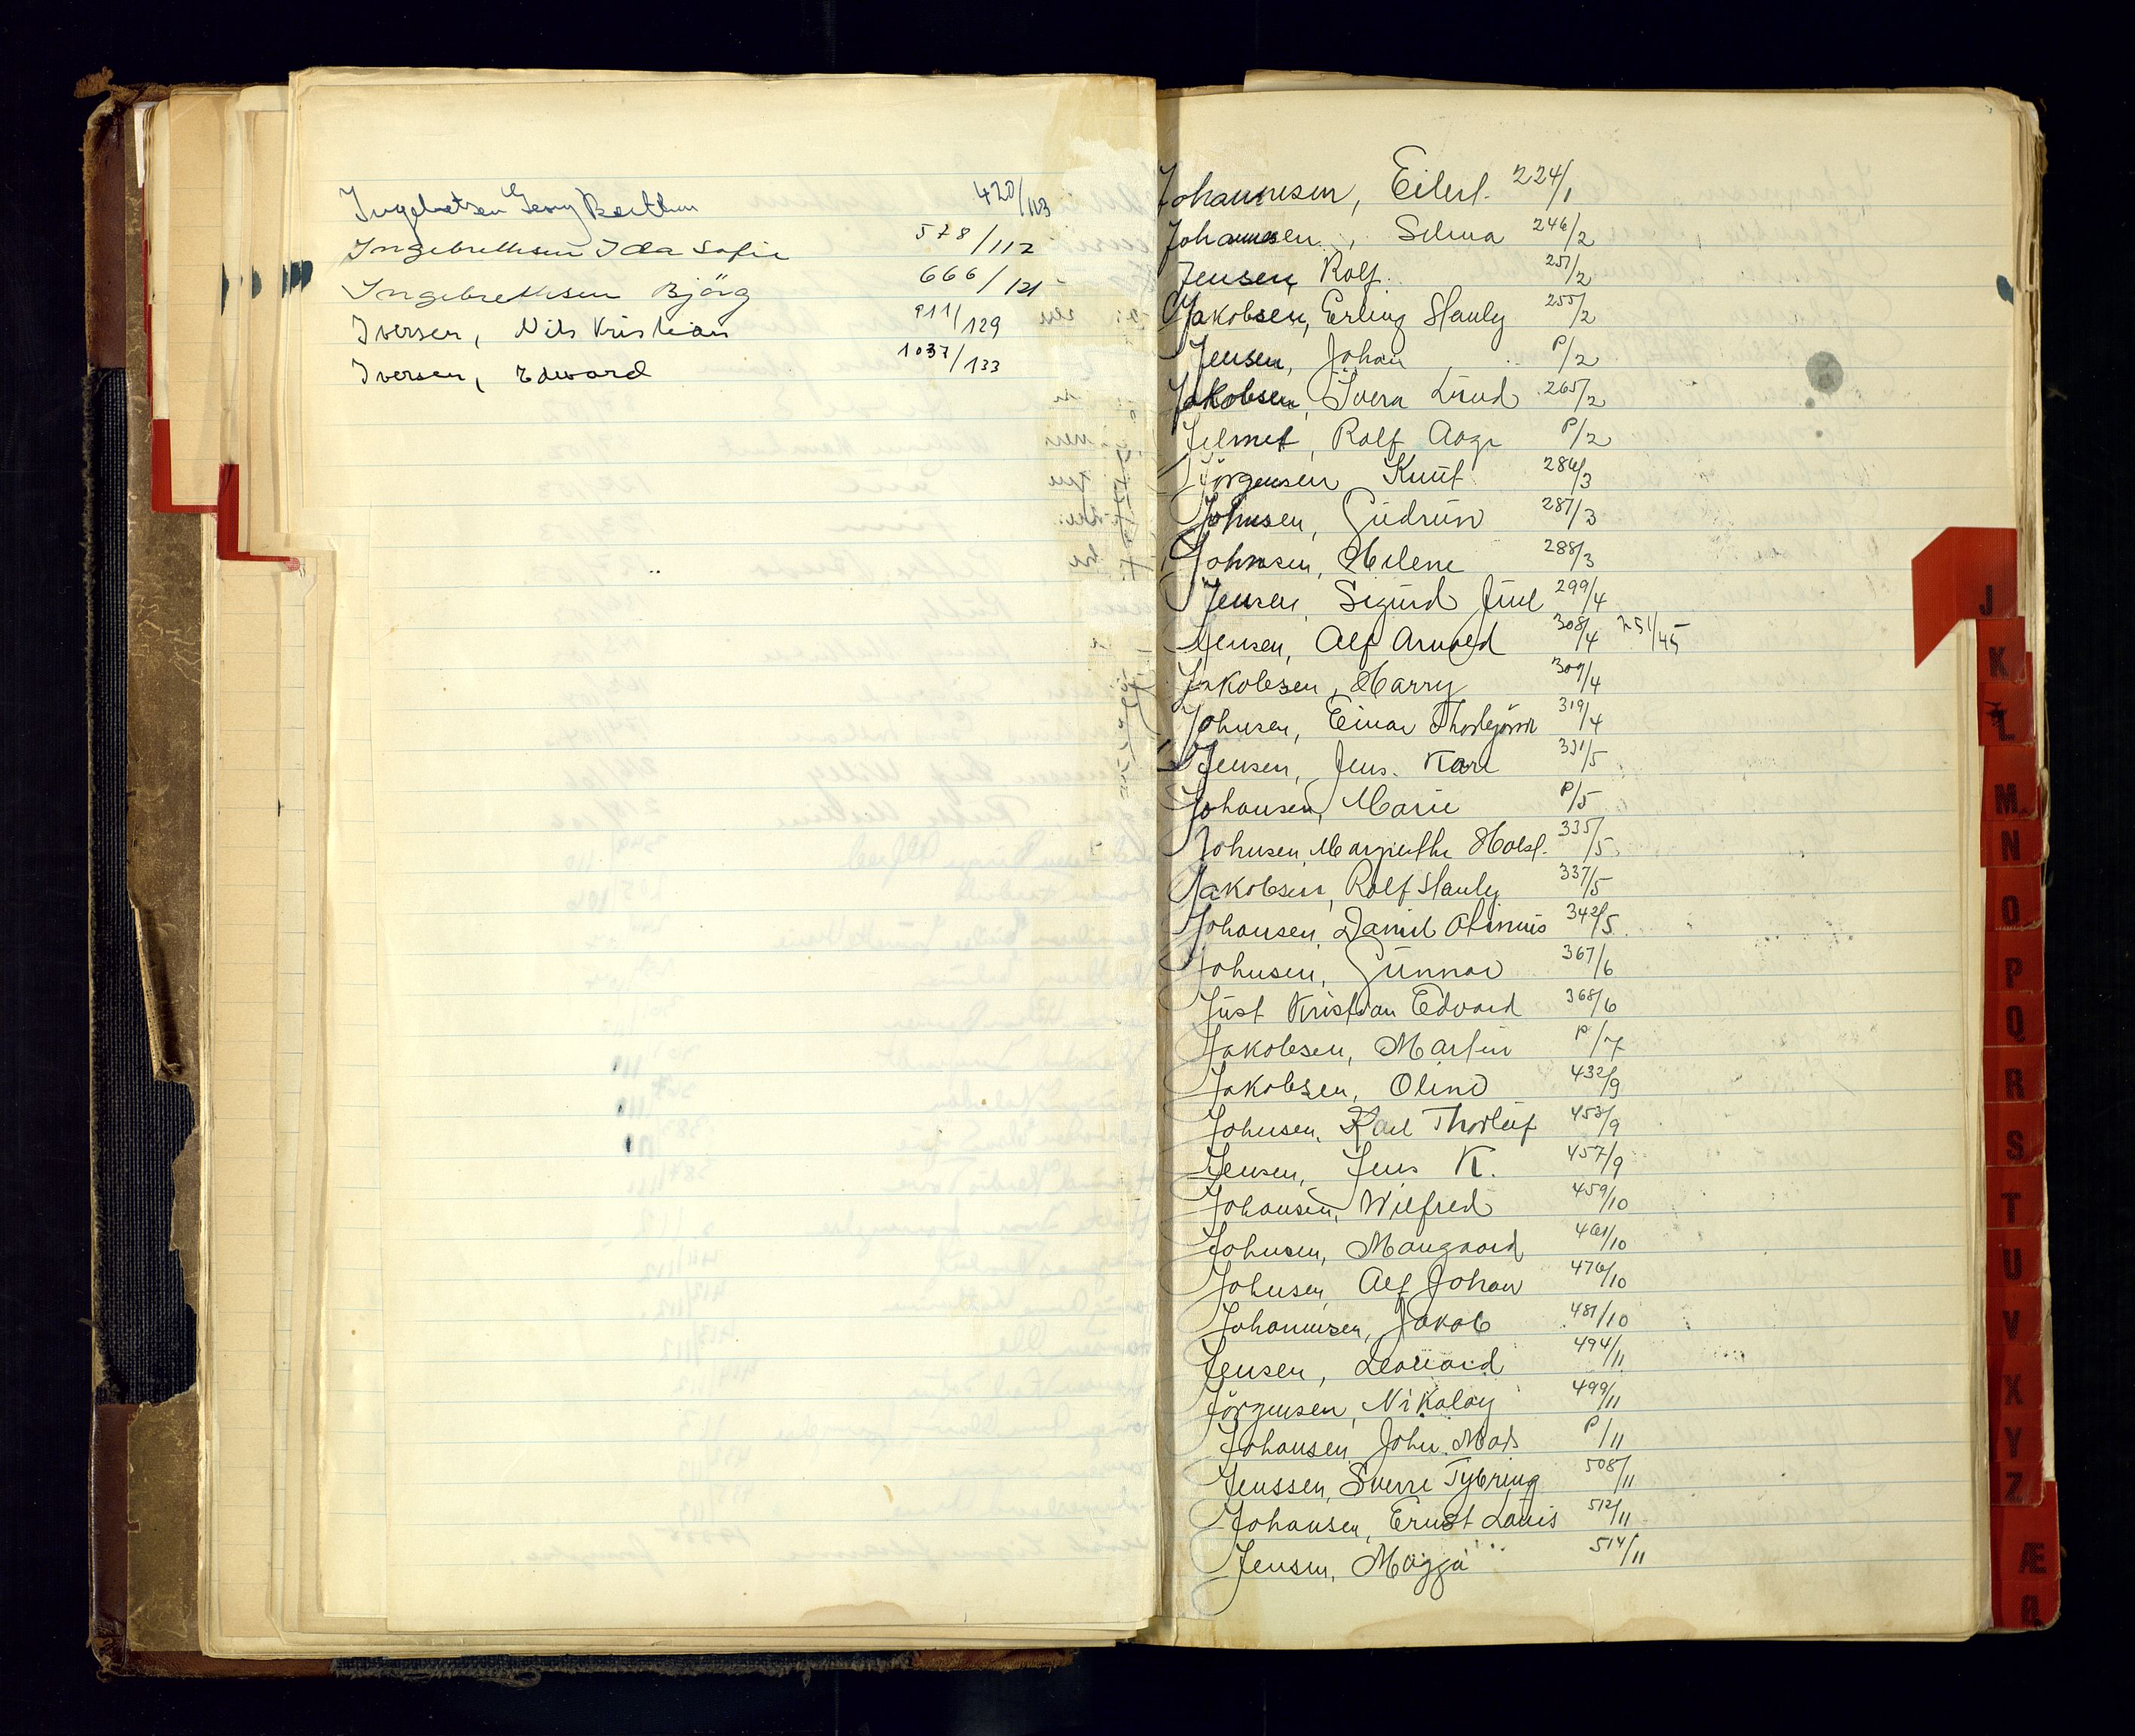 Ingebretsen Georg Berthin 420/113
Ingebrethsen Ida Sofie 578/117
Ingebrethsen Björg 666/121
Iversen, Nils Kristian 911/129
Iversen, Edward 1037/133
Johannesen, Eilert. 224/1
Johannesen, Selma 246/2
Jensen, Rolf 251/2
Jakobsen, Erling Stanly 255/2
Jensen, Johan P/2
Jakobsen, Svera Lund 265/2
Jelmet, Rolf Aage P/2
Jörgensen Knut 286/3
Johnsen, Gudrun 287/3
Johnsen, Helene 288/3
Jensen, Sigurd Juul 299/4
Jensen, Alf Arnold 308/4 251/45
Jakobsen, Harry 309/4
Johnsen, Einar Thorbjörn 319/4
Jensen, Jens. Karl 331/5
Johansen, Marie P/5
Johnsen, Margrethe Holst. 335/5
Jakobsen, Rolf Stanly 337/5
Johansen, Daniel Olinius 342/5
Johnsen, Gunnar 367/6
Just Kristian Edvard 368/6
Jakobsen, Martin P/7
Jakobsen, Olino 432/9
Johnsen, Karl Thorleif 453/9
Jensen, Jens K. 457/9
Johansen, Wilfred 459/10
Johnsen, Mangaard 461/10
Johnsen, Alf Johan 476/10
Johannesen, Jakob 481/10
Jensen, Leonard 494/11
Jörgensen, Nikolay 499/11
Johansen, John. Mads P/11
Jenssen, Sverre Tybring 508/11
Johansen, Ernst Louis 512/11
Jensen, Magja 514/11
J
K
L
M
N
O
P
Q
R
S
T
U
V
X
Y
Z
Æ
Ø